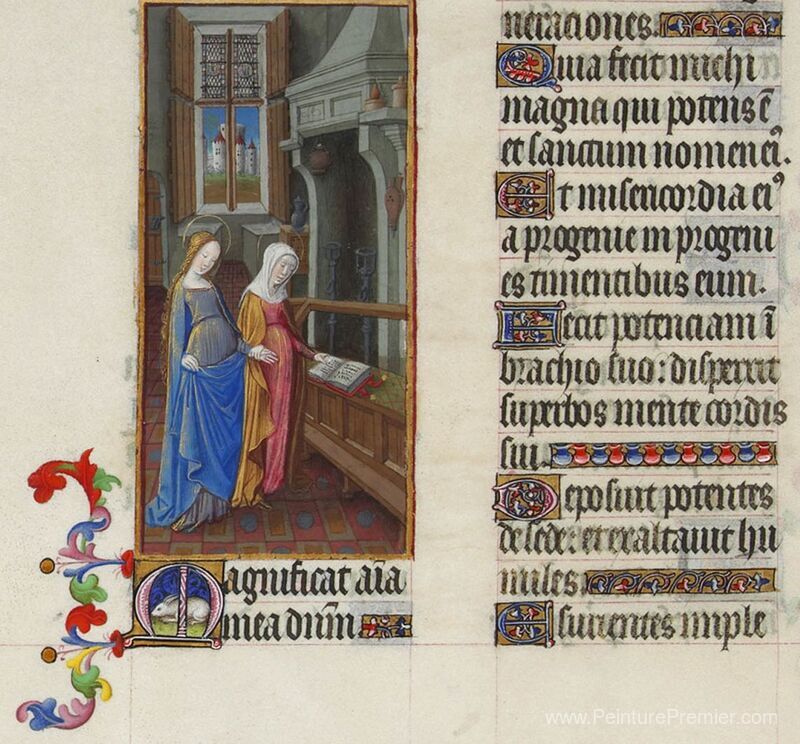 agnificat aīa
mea dn̄m
neraciones.
Quia fecit michi
magna qui potens ē
et sanctum nomen eiꝰ.
Et misericordia eiꝰ
a progenie in progeni
es timentibus eum.
Fecit potenciam ī
brachio suo: dispersit
superbos mente cordis
sui.
Deposuit potentes
de sede: et exaltavit hu
miles.
Esurientes imple
www.PeinturePremier.com